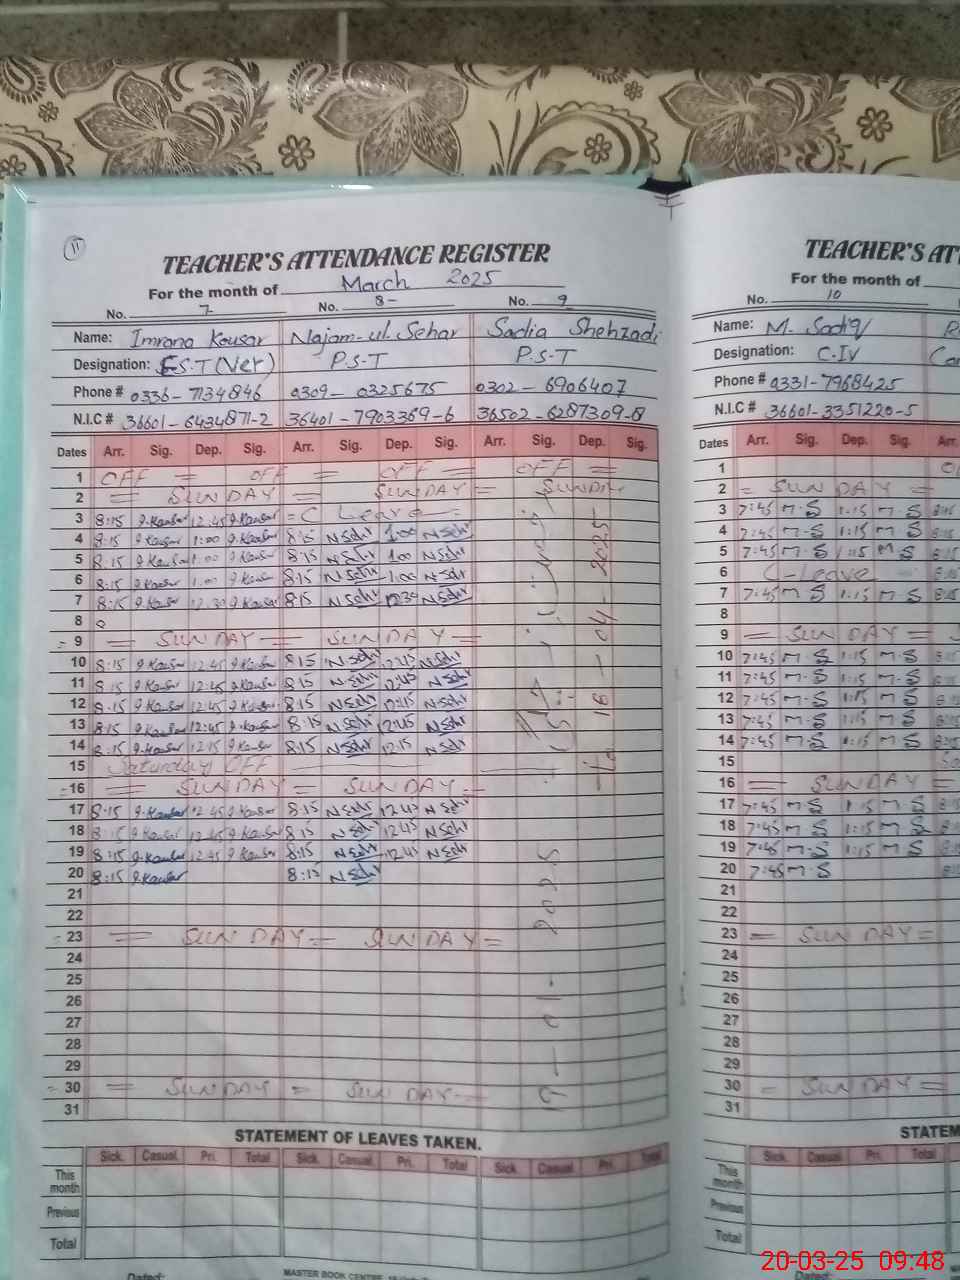 11
TEACHER'S ATTENDANCE REGISTER
For the month of March 2025
No. 7 No. 8 No. 9
Name: Imrana Kousar Najam-ul-Sehar Sadia Shehzadi
Designation: E.S.T (Ver) P.S-T P.S-T
Phone # 0336-7134846 0309-0325675 0302-6906407
N.I.C # 36601-6434871-2 36401-7903369-6 36502-6287309-8
Dates Arr. Sig. Dep. Sig. Arr. Sig. Dep. Sig. Arr. Sig. Dep. Sig.
1 OFF = OFF = OFF = OFF =
2 = SUNDAY = SUNDAY = SUNDAY
3 8:15 I.Kousar 12:45 I.Kousar = C Leave
4 8:15 I.Kousar 1:00 I.Kousar 8:15 N Sehr 1:00 N Sehr
5 8:15 I.Kousar 1:00 I.Kousar 8:15 N Sehr 1:00 N Sehr
6 8:15 I.Kousar 1:00 I.Kousar 8:15 N Sehr 1:00 N Sehr
7 8:15 I.Kousar 12:30 I.Kousar 8:15 N Sehr 12:30 N Sehr
8
= 9 = SUNDAY = SUNDAY =
10 8:15 I.Kousar 12:45 I.Kousar 8:15 N Sehr 12:45 N Sehr
11 8:15 I.Kousar 12:45 I.Kousar 8:15 N Sehr 12:45 N Sehr
12 8:15 I.Kousar 12:45 I.Kousar 8:15 N Sehr N Sehr
13 8:15 I.Kousar 12:45 I.Kousar 8:15 N Sehr 12:45 N Sehr
14 8:15 I.Kousar 12:15 I.Kousar 8:15 N Sehr 12:15 N Sehr
15 Saturday OFF
= 16 = SUNDAY = SUNDAY =
17 8:15 I.Kousar 12:45 I.Kousar 8:15 N Sehr 12:45 N Sehr
18 8:15 I.Kousar 12:45 I.Kousar 8:15 N Sehr 12:45 N Sehr
19 8:15 I.Kousar 12:45 I.Kousar 8:15 N Sehr 12:45 N Sehr
20 8:15 I.Kousar 8:15 N Sehr
21
22
= 23 = SUNDAY = SUNDAY =
24
25
26
27
28
29
= 30 = SUNDAY = SUNDAY =
31
19-01-2025 to 18-04-2025
STATEMENT OF LEAVES TAKEN.
Sick. Casual. Pri. Total Sick. Casual. Pri. Total Sick Casual Pri. Total
This month
Previous
Total
Dated:
MASTER BOOK CENTRE
TEACHER'S AT
For the month of
No. 10
Name: M. Sadiq
Designation: C-IV
Phone # 0331-7968425
N.I.C # 36601-3351220-5
Dates Arr. Sig. Dep. Sig. Arr.
1
2 = SUNDAY =
3 7:45 M-S 1:15 M S
4 7:45 M-S 1:15 M S
5 7:45 M-S 1:15 M S
6 C-Leave
7 7:45 M-S 1:15 M S
8
9 = SUNDAY =
10 7:45 M-S 1:15 M-S
11 7:45 M-S 1:15 M-S
12 7:45 M-S 1:15 M-S
13 7:45 M-S 1:15 M-S
14 7:45 M-S 1:15 M-S
15
16 = SUNDAY =
17 7:45 M-S 1:15 M-S
18 7:45 M-S 1:15 M-S
19 7:45 M-S 1:15 M-S
20 7:45 M-S
21
22
23 = SUNDAY =
24
25
26
27
28
29
30 = SUNDAY =
31
STATEM
Sick. Casual. Pri. Total
This month
Previous
Total
Dated:
20-03-25 09:48